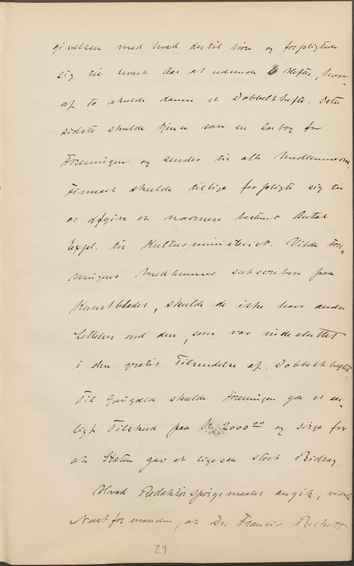 givelsen med hvad dertil hører og forpligtede
sig til hvert Aar at udsende 6 Hefter, hvor-
af to skulde danne et Dobbelthefte. Dette
sidste skulde tjene som en Aarbog for
Foreningen og sendes til alle Medlemmerne
Firmaet skulde tillige forpligte sig til
at afgive et nærmere bestemt Antal
Expl. til Kultusministeriet. Vilde For-
eningens Medlemmer subscribere paa
Kunstbladet, skulde de ikke have anden
Lettelse end den, som var indesluttet
i den gratis Tilsendelse af Dobbelthefte
Til Gjengæld skulde Foreningen give et aar-
ligt Tilskud paa Kr. 2000 og sørge for
at Staten gav et ligesaa stort Bidrag
Hvad Redaktørspørgsmaalet angik, 
Næstformanden, at Dr. Francis Beckett
29